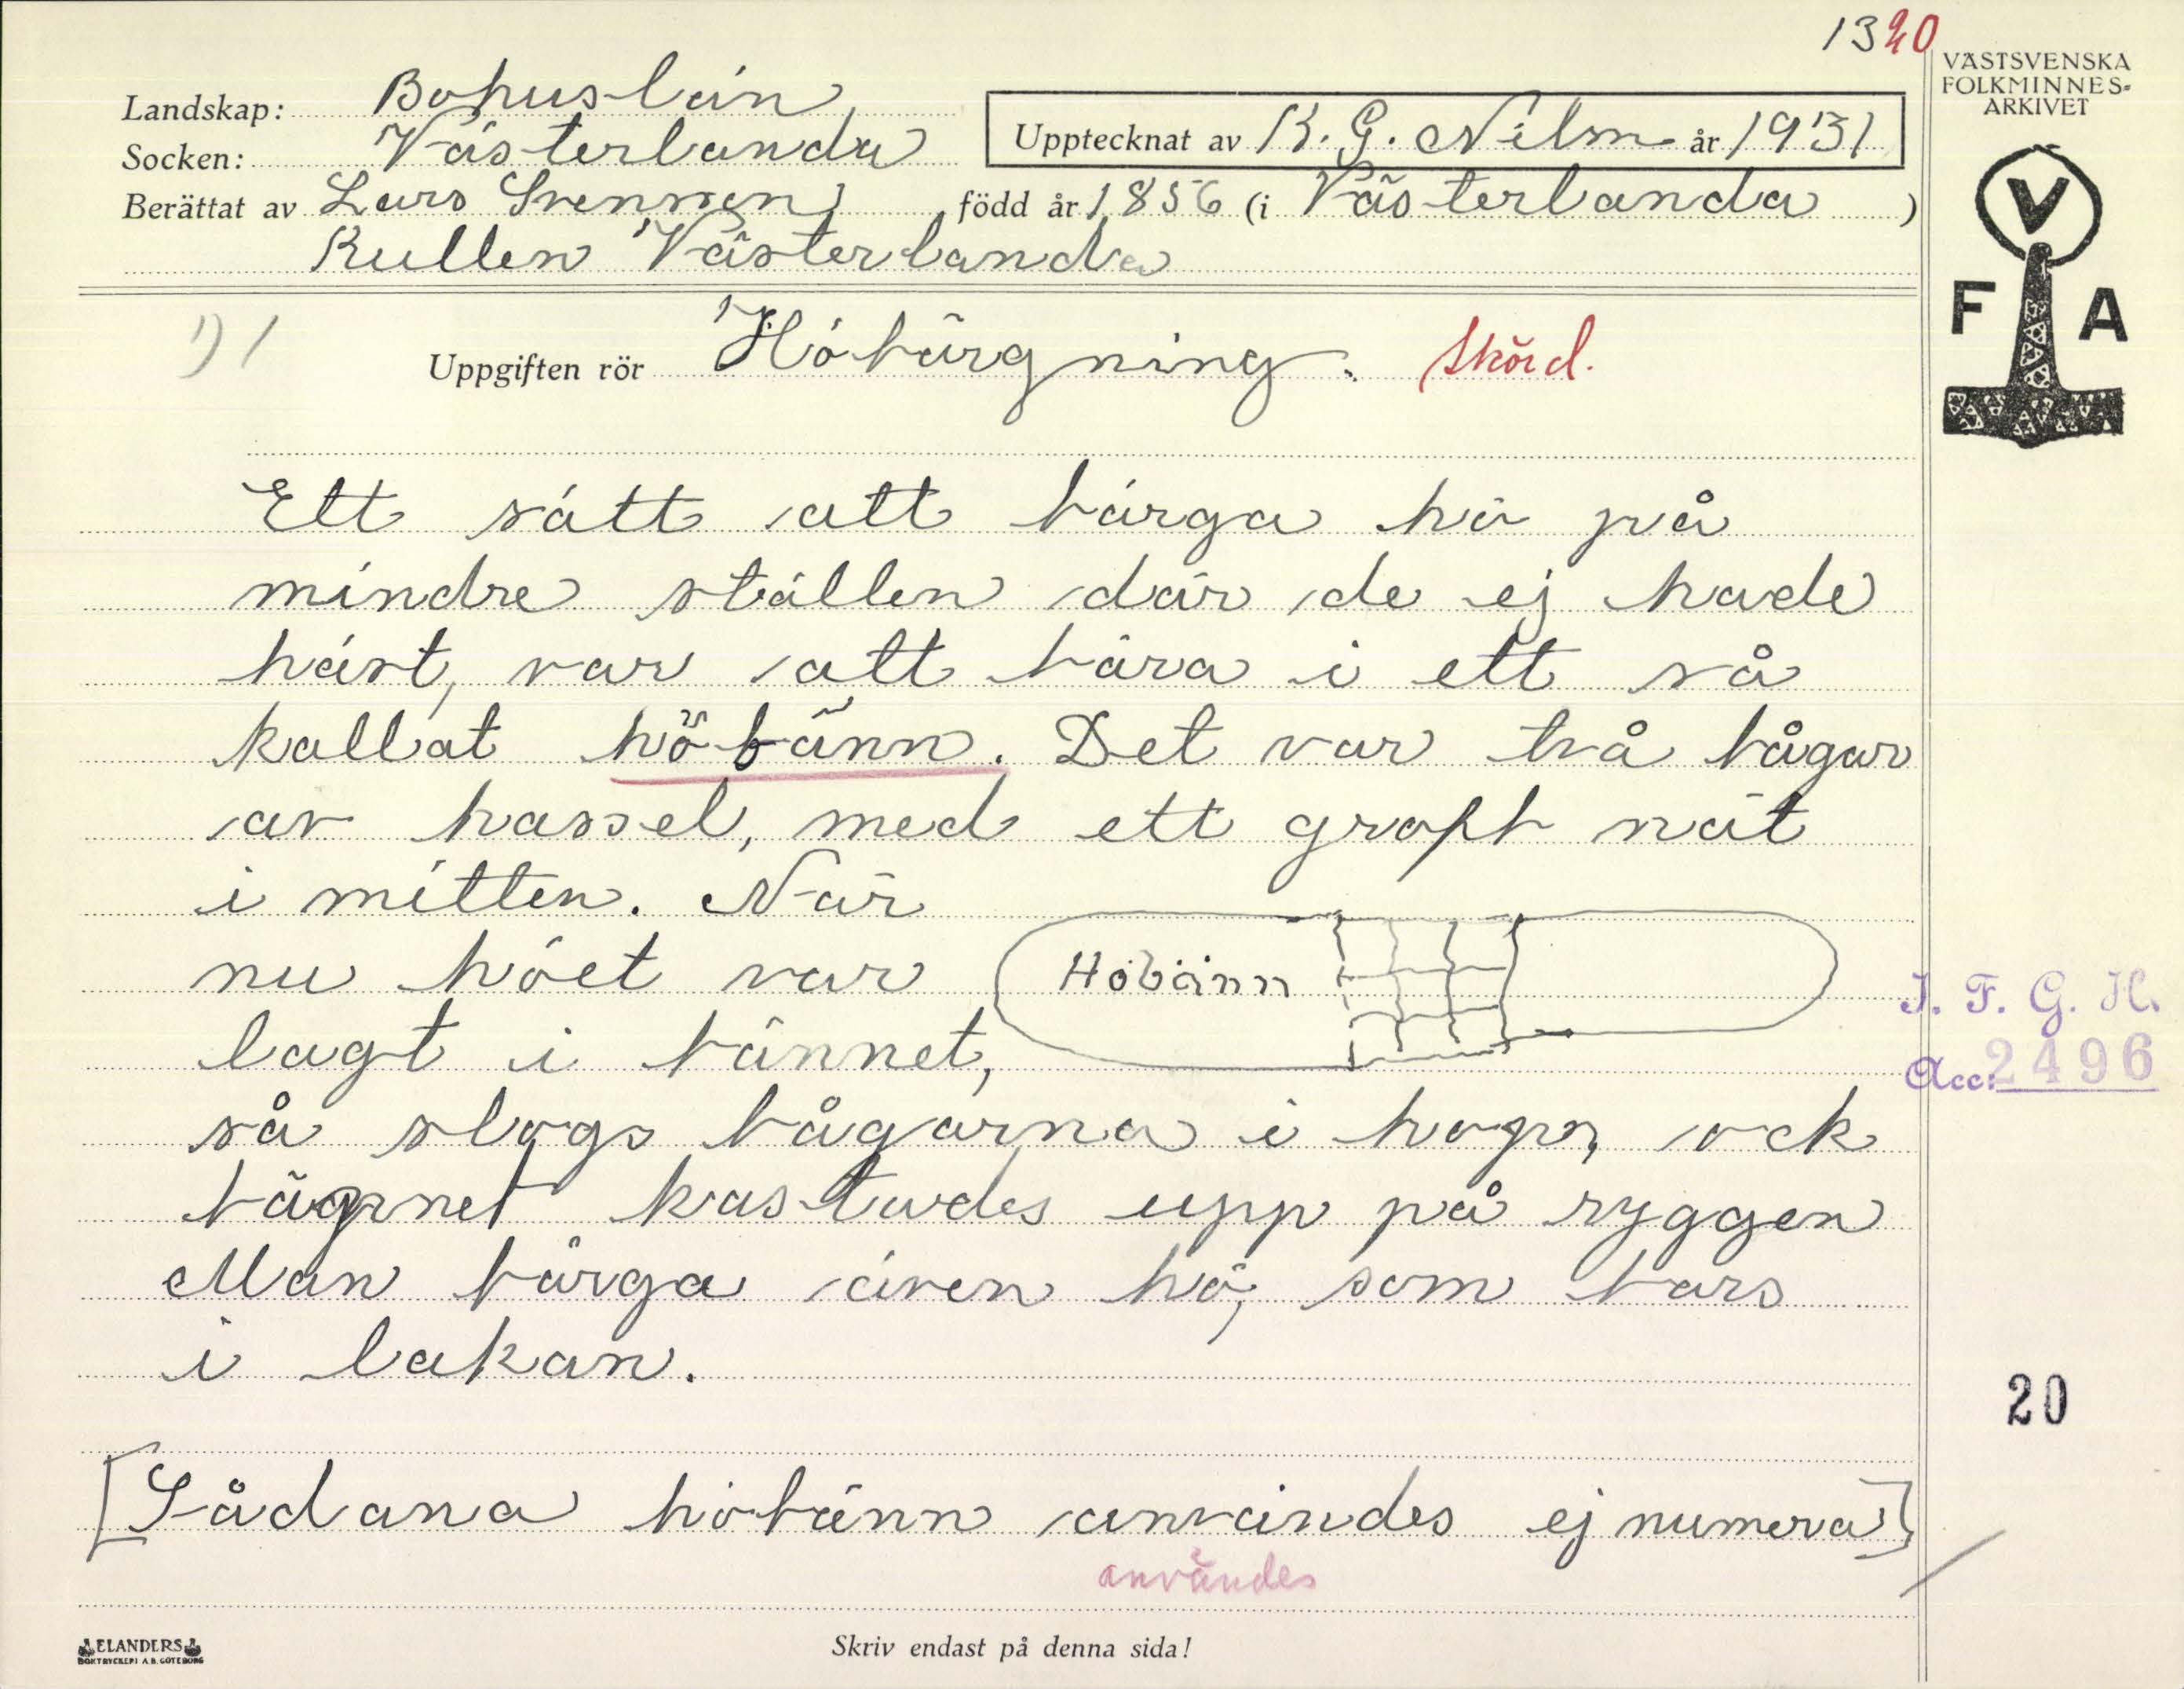 1320
VÄSTSVENSKA
FOLKMINNES-
ARKIVET
Landskap: Bohuslän
Socken: Västerlanda
Upptecknat av K. G. Nilm år 1931
Berättat av Lars Svensson född år 1856 (i Västerlanda)
Kullen Västerlanda
V
F A
1) 1
Uppgiften rör Höbärgning. Skörd.
Ett sätt att bärga hö på
mindre ställen där de ej hade
häst, var att bära i ett så
kallat höbänn. Det var två bågar
av hassel, med ett groft nät
i mitten. När
nu höet var
Höbänn
lagt i bännet,
så slogs bågarna i hopn, ock
bännet kastades upp på ryggen
Man bärga även hö, som bars
i lakan.
I. F. G. H.
Acc. 2496
20
[Sådana höbänn användes ej numera]
användes
ELANDERS
BOKTRYCKERI A.B. GÖTEBORG
Skriv endast på denna sida!